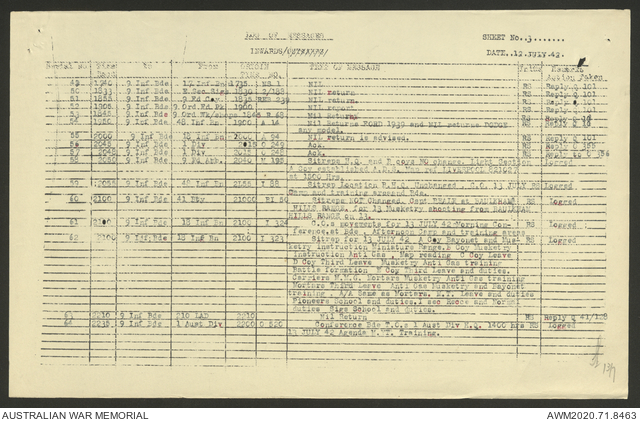 LOG OF MESSAGES SHEET NO. 3.......
INWARDS/ DATE. 12 JULY 42.
Serial NO. Time to From ORIGIN TIME NO. TEXT OF MESSAGE Action Taken
49 1740 9 Inf Bde NIL RS Reply Q 101
50 1833 9 Inf Bde E.Sec Sigs 1830 2/188 NIL return RS Reply Q 101
51 1855 9 Inf Bde 9 Fd Coy 1835 239 NIL return. RS Reply Q 101
52 1905 9 Inf Bde 9 Ord.Fd.Pk 1900 NIL report. RS Reply Q 101
53 1845 9 Inf Bde 9 Ord Wkshops 1844 R 68 Nil Return RS Reply Q
54 1950 9 Inf Bde 45 Inf.Bn. 1900 A 14 Nil Returns FORD 1939 and NIL returns DODGE RS Reply Q
any model.
55 2000 9 Inf Bde 45 Inf Bn 1900 A 94 NIL return is advised. RS Reply Q 101
56 2045 9 Inf Bde 1 Div 2015 O 249 Ack. RS Reply O 355
57 2045 9 Inf Bde 1 Div 2015 O 248 Ack. RS Reply O 356
58 2050 9 Inf Bde 9 Fd Amb. 2040 M 195 Sitreps H.Q. and B coys NO change. Light Section RS Logged
A Coy established A.D.S. Map ref LIVERPOOL
at 1500 Hrs.
59 2055 9 Inf Bde Inf Bn 2055 I 88 Sitrep Location B.H.Q. Unchanged. C.O. 13 JULY RS Logged
Camp and training around Bde.
60 2100 9 Inf Bde 41 Bty 21000 BI 50 Sitreps NOT Changed. Capt at RS Logged
HILLS RANGE for 13 Musketry shooting from
HILLS RANGE on 13.
61 2100 9 Inf Bde 18 Inf Bn 2100 I 324 C.O.s movements for 13 JULY 42 Morning Con- RS Logged
ference at Bde. Afternoon Bren and training areas
62 2100 9 Inf Bde 18 Inf Bn 2100 I 323 Sitrep for 13 JULY 42. A Coy Bayonet and Mus- RS Logged
ketry instruction Miniature Range. B Coy Musketry
Instruction Anti Gas, Map reading C Coy Leave
D Coy Third Leave Musketry Anti Gas training
Battle formation H Coy Third Leave and duties.
Carriers M.M.G. Mortars Musketry Anti Gas training
Mortars Third Leave Anti Gas Musketry and Bayonet
training. A/A Same as Mortars. Leave and duties
Pioneers School and duties. I sec Recce and Normal
duties Sigs School and duties.
63 2210 9 Inf Bde 210 LAD 2210 Nil Return RS Reply Q 41/128
64 2235 9 Inf Bde 1 Aust Div 2200 O 520 Conference Bde I.O.s 1 Aust Div H.Q. 1400 hrs RS Logged
13 JULY 42 Agenda N. T. Training.
13/7
AUSTRALIAN WAR MEMORIAL AWM2020.71.8463